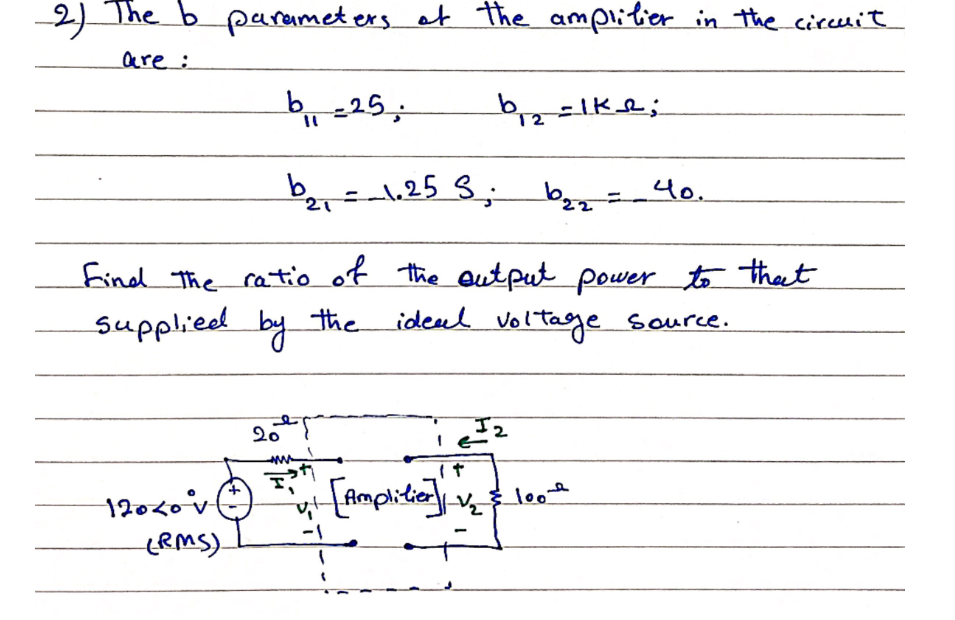 2) The b parameters of the amplifier in the circuit
are :
b11 = 25 ; b12 = 1KΩ ;
b21 = -1.25 S ; b22 = -40.
Find The ratio of the output power to that
supplied by the ideal voltage source.
20Ω I2
I1 + +
120<0°V + - V1 [Amplifier] V2 100Ω
(RMS) - -